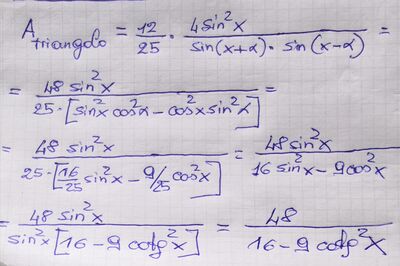 A triangolo = 12/25 · 4sin²x / sin(x+α) · sin(x-α) =
= 48 sin²x / 25 · [sin²x cos²α - cos²x sin²α] =
= 48 sin²x / 25 · [16/25 sin²x - 9/25 cos²x] = 48 sin²x / 16 sin²x - 9 cos²x
= 48 sin²x / sin²x [16 - 9 cotg²x] = 48 / 16 - 9 cotg²x